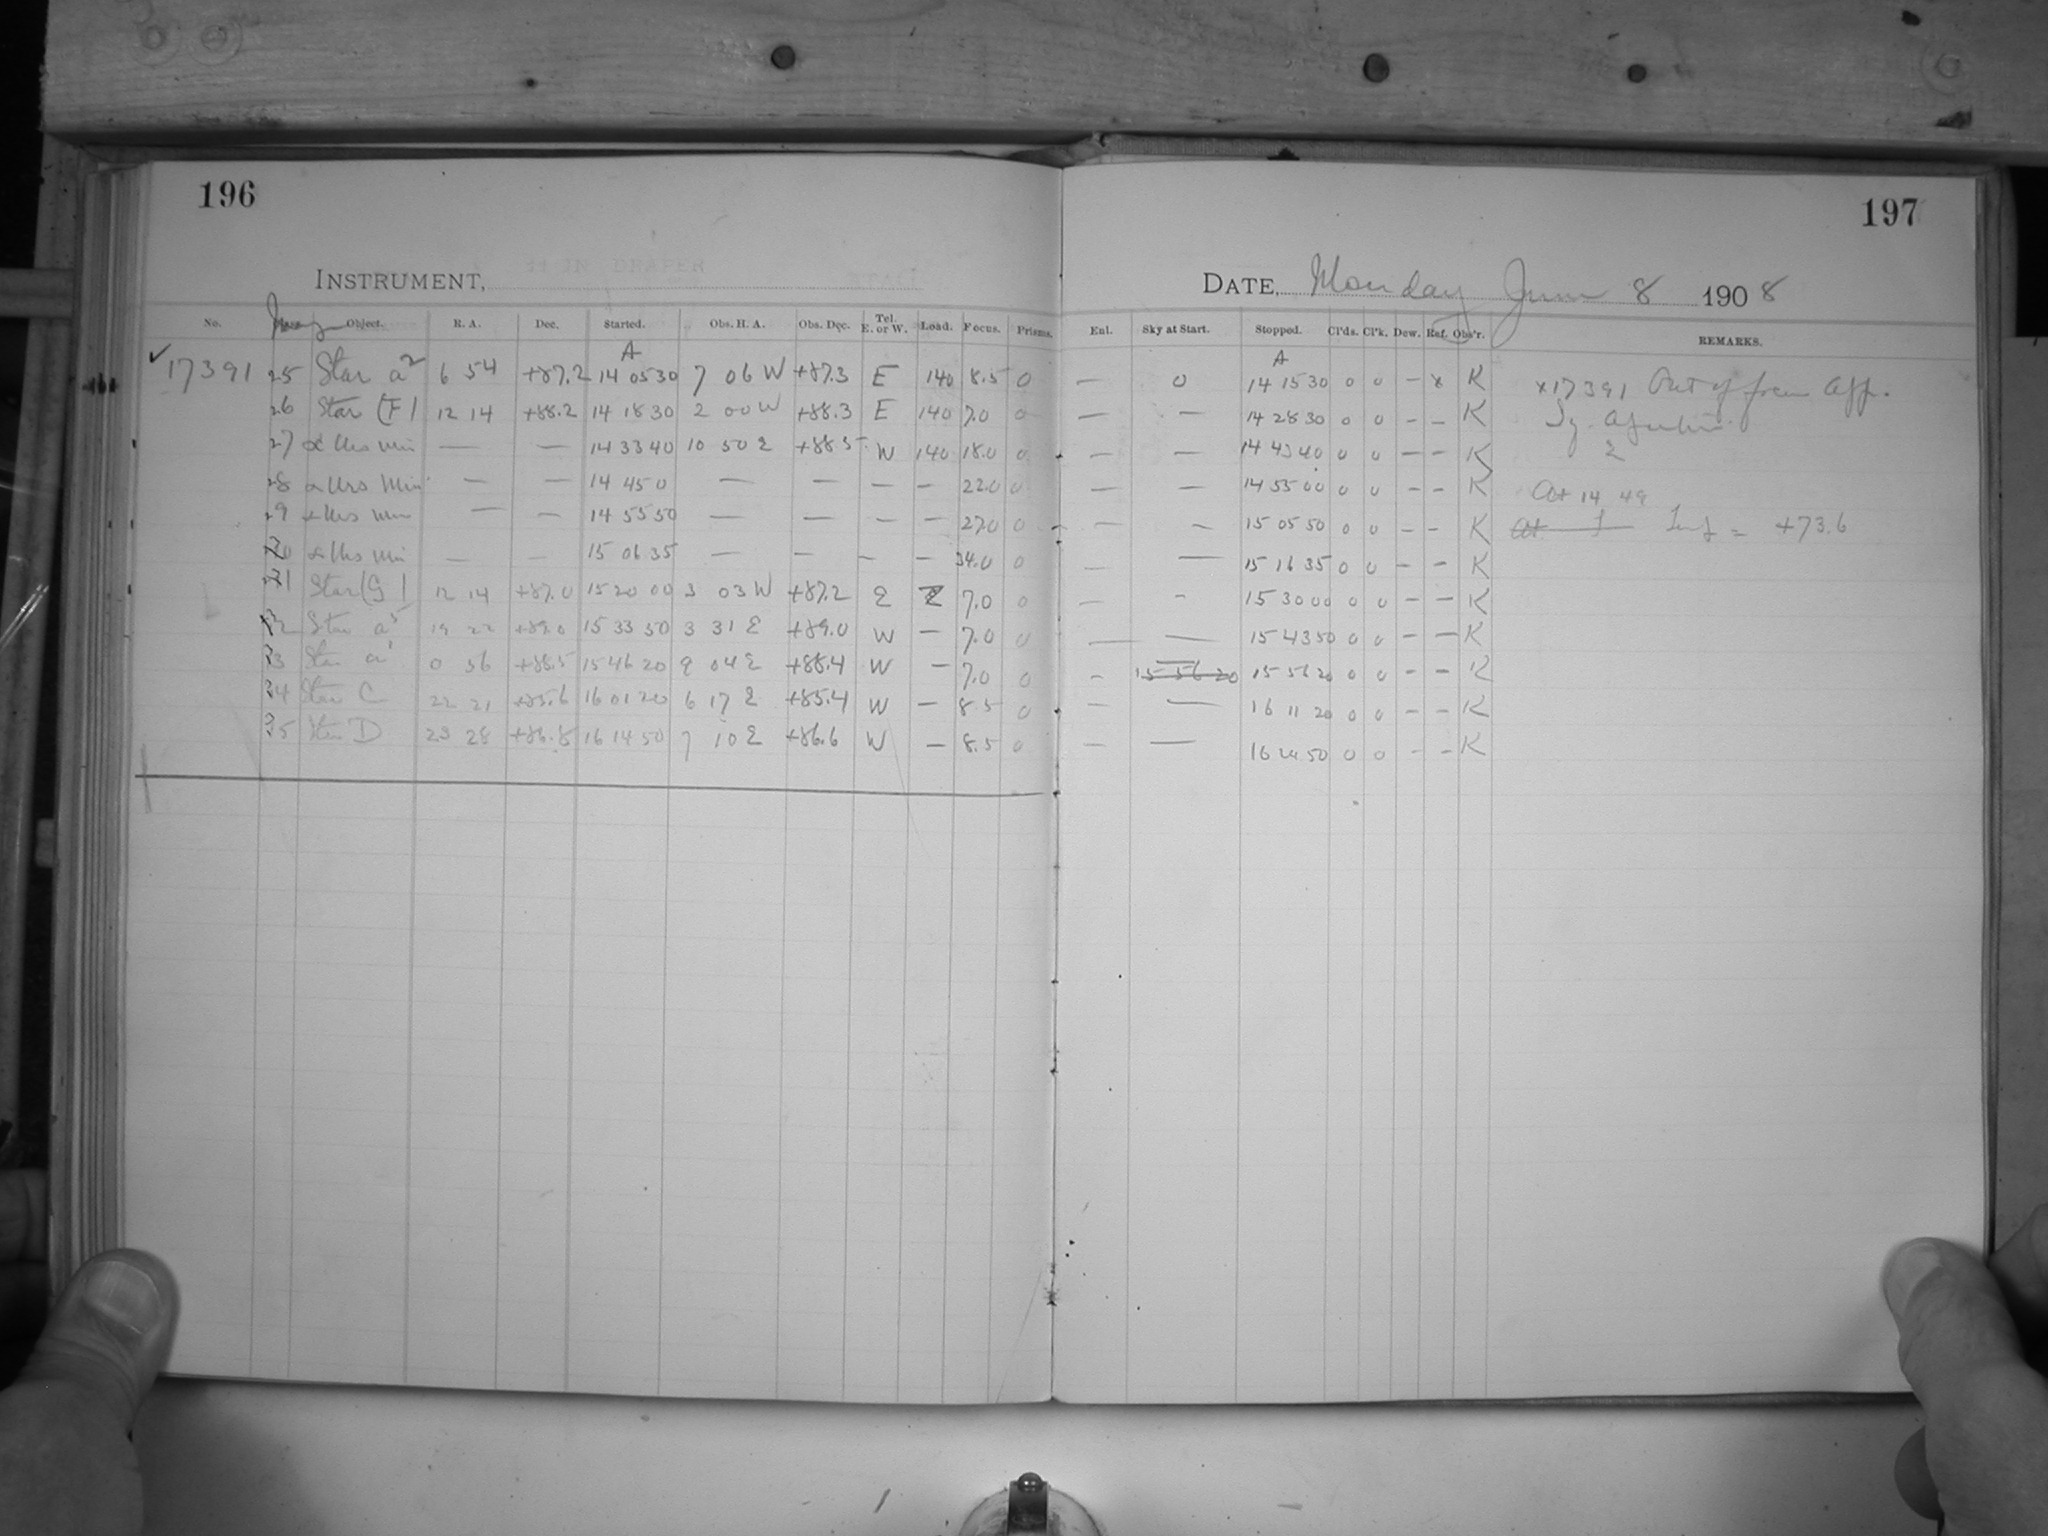 196
197
INSTRUMENT,
DATE, Monday June 8 1908
No. Object. R. A. Dec. Started. Obs. H. A. Obs. Dec. Tel. E. or W. Load. Focus. Prisms. Enl. Sky at Start. Stopped. Cl'ds. Cl'k. Dew. Ref. Obs'r. REMARKS.
A A
✓17391 25 Star a2 6 54 +87.2 14 05 30 7 06 W +87.3 E 140 8.5 0 — 0 14 15 30 0 0 – x K x17391 Out of focus
26 Star (F) 12 14 +88.2 14 18 30 2 00 W +88.3 E 140 7.0 0 — — 14 28 30 0 0 – – K
27 α Urs Min — — 14 33 40 10 50 E +88.5 W 140 18.0 0 — — 14 43 40 0 0 – – K
28 α Urs Min — — 14 45 0 — — — — 22.0 0 — — 14 55 00 0 0 – – K At 14 49
29 α Urs Min — — 14 55 50 — — — — 27.0 0 — — 15 05 50 0 0 – – K At +73.6
30 α Urs Min — — 15 06 35 — — — — 34.0 0 — — 15 16 35 0 0 – – K
31 Star (G) 12 14 +87.0 15 20 00 3 03 W +87.2 E 7.0 0 — – 15 30 00 0 0 – – K
32 Star a5 19 22 +89.0 15 33 50 3 31 E +89.0 W — 7.0 0 — — 15 43 50 0 0 – – K
33 Star a1 0 56 +88.5 15 46 20 9 04 E +88.4 W — 7.0 0 – 15 56 20 15 56 20 0 0 – – K
34 Star C 22 21 +85.6 16 01 20 6 17 E +85.4 W — 8.5 0 — — 16 11 20 0 0 – – K
35 Star D 23 28 +86.8 16 14 50 7 10 E +86.6 W — 8.5 0 — — 16 24 50 0 0 – – K